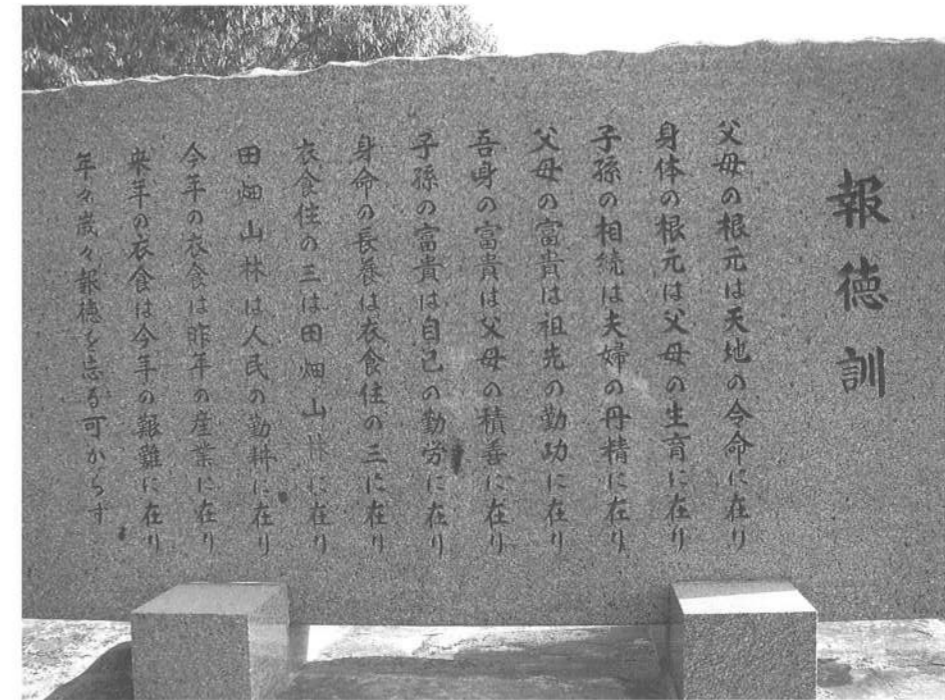 報徳訓
父母の根元は天地の令命に在り
身体の根元は父母の生育に在り
子孫の相続は夫婦の丹精に在り
父母の富貴は祖先の勤功に在り
吾身の富貴は父母の積善に在り
子孫の富貴は自己の勤労に在り
身命の長養は衣食住の三に在り
衣食住の三は田畑山林に在り
田畑山林は人民の勤耕に在り
今年の衣食は昨年の産業に在り
来年の衣食は今年の艱難に在り
年々歳々報徳を忘る可からず